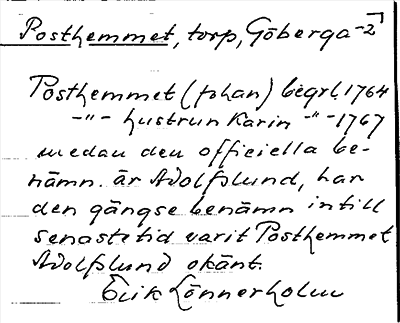 Posthemmet, torp, Göberga-2
Posthemmet (Johan) begrl. 1764
-"- hustrun Karin -"- 1767
medan den officiella be-
nämn. är Adolfslund, har
den gängse benämn intill
senaste tid varit Posthemmet
Adolfslund okänt.
Erik Lönnerholm